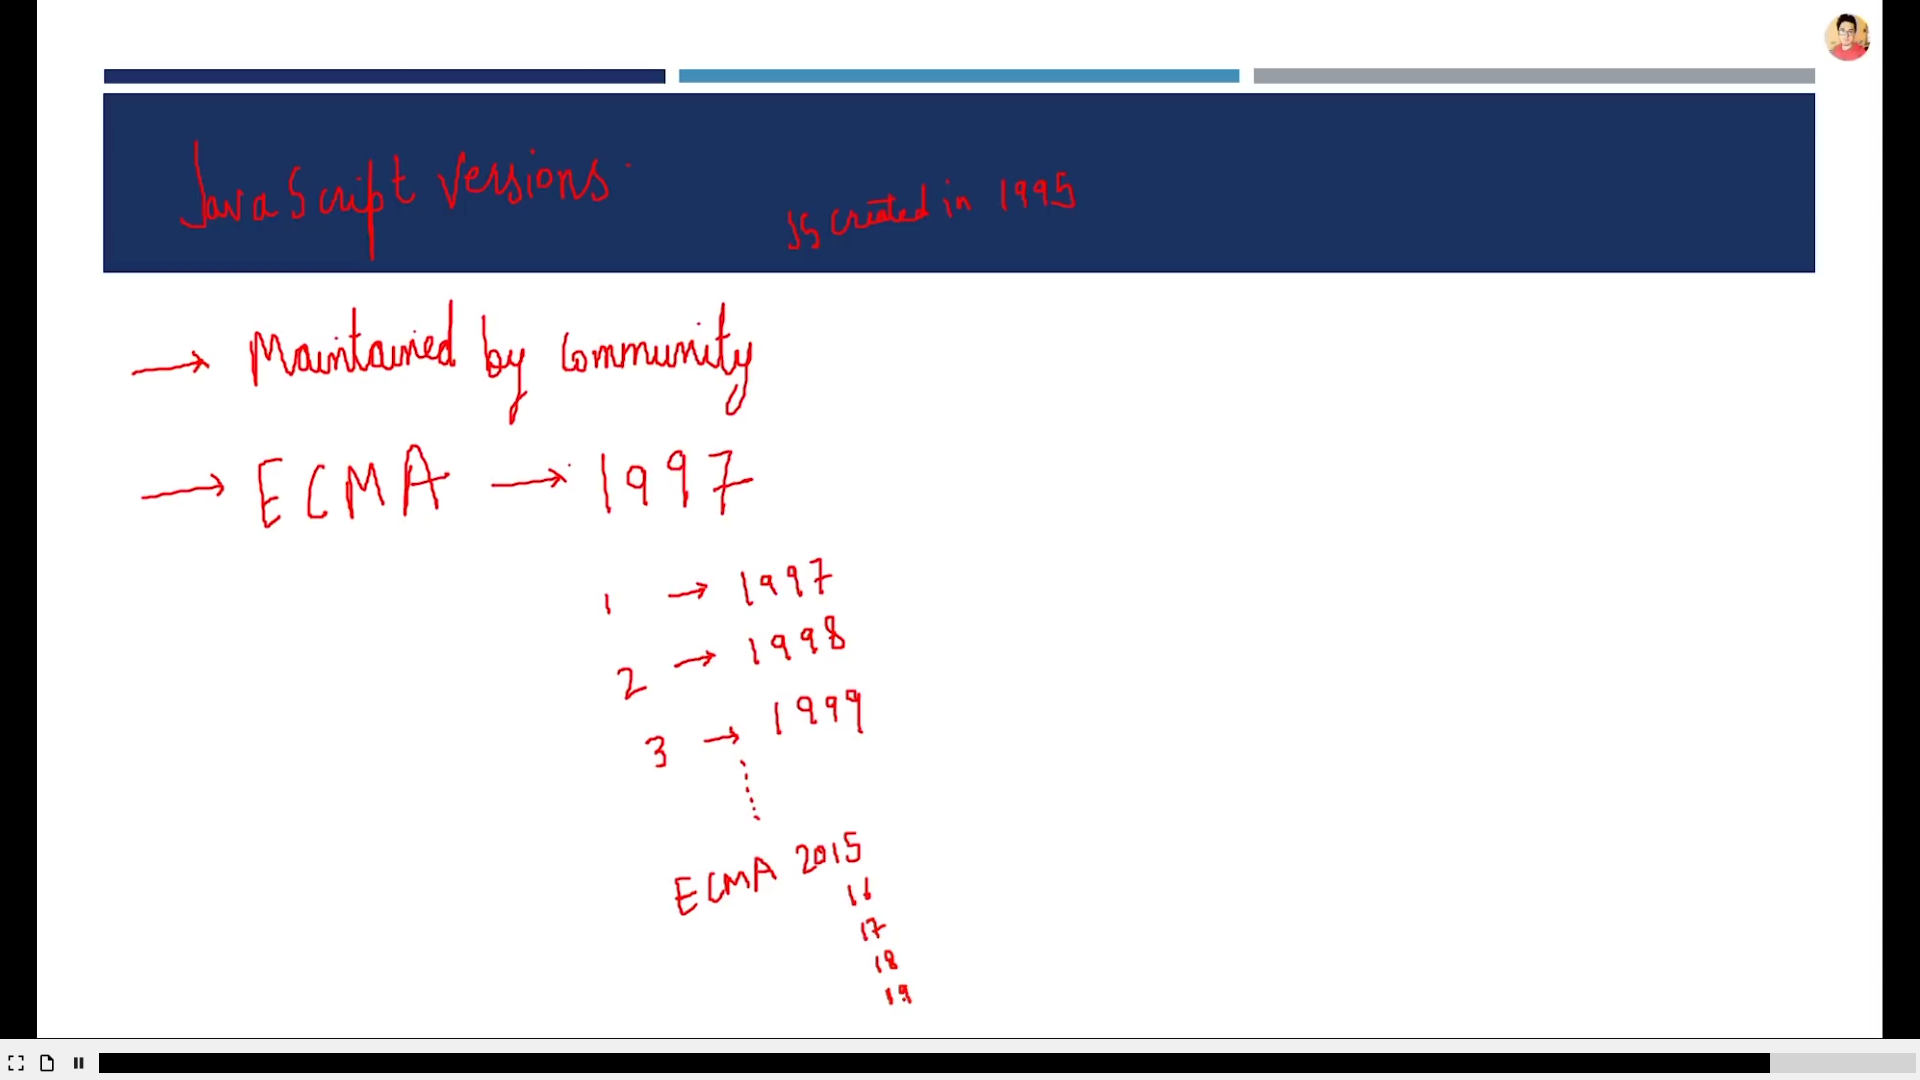 JavaScript Versions.
JS created in 1995
→ Maintained by Community
→ ECMA → 1997
1 → 1997
2 → 1998
3 → 1999
ECMA 2015
16
17
18
19